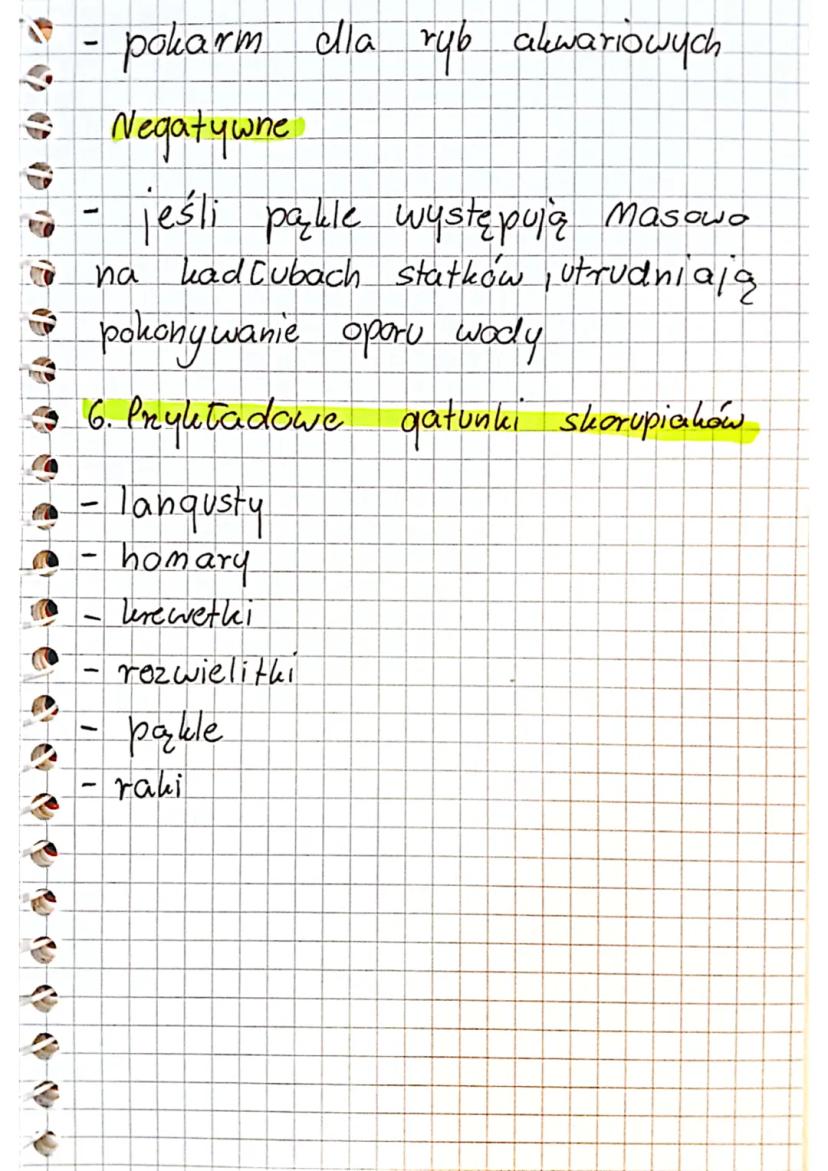 - pokarm dla ryb akwariowych
Negatywne
- jeśli pąkle występują masowo
na kadłubach statków, utrudniają
pokonywanie oporu wody
6. Przykładowe gatunki skorupiaków
- langusty
- homary
- krewetki
- rozwielitki
- pąkle
- raki